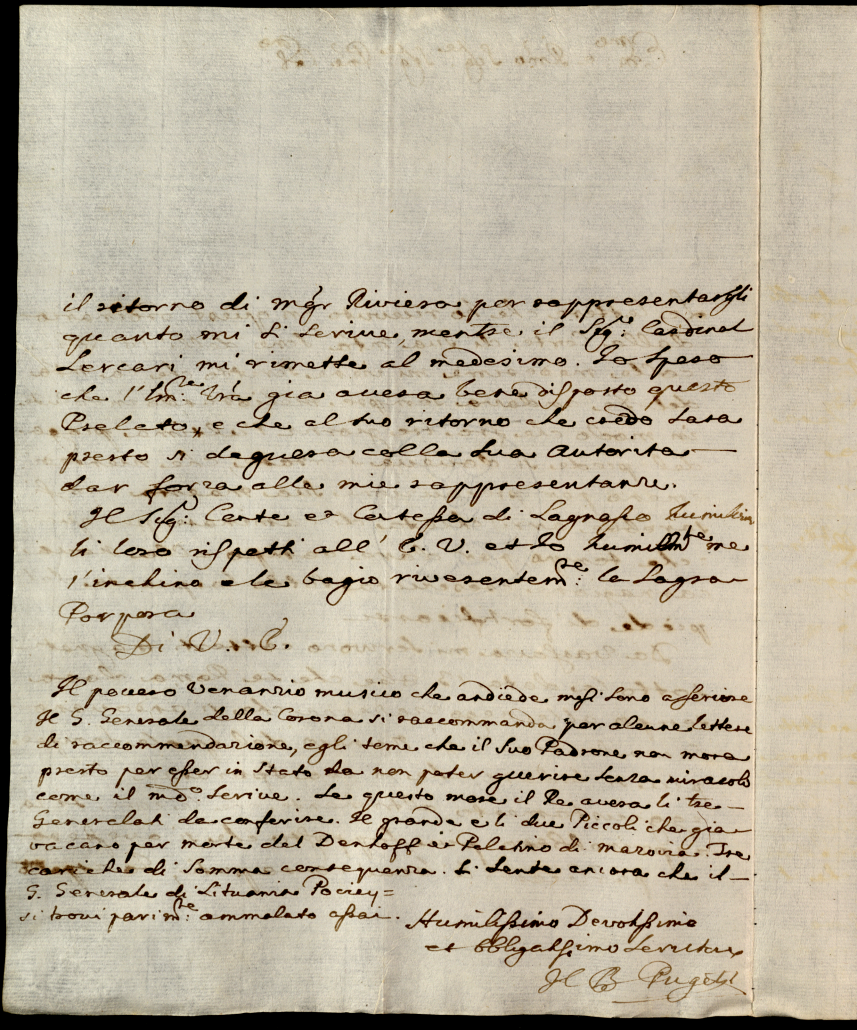 il ritorno di mgr Riviera per rappresentargli
quanto mi si scrive, mentre il Sigr: Cardinal
Lercari mi rimette al medesimo. Io spero
che l'Em:za Vra gia avera bene disposto questo
Prelato, e che al suo ritorno che credo sara
presto si deguera colla sua autorita
dar forza alle mie rappresentanze.
Il Sigr: Conte et Contessa di Lagnasco
li loro rispetti all' E. V. et Io humillmte me
l'inchino e le bagio riverentemte: la Sagra
Porpora
Di V. E.
Il povero Venanzio musico che andiede mesi sono a servire
il G. Generale della Corona si raccommanda per alcune lettere
di raccommendazione, egli teme che il suo Padrone non mora
presto per esser in stato da non poter guerire senza miracolo
come il mdo: scrive. Se questo more il Re avera li tre
Generalati da conferire. Il grande e li due Piccoli che gia
vacano per morte del Denhoff e Palatino di Mazovia. Tre
cariche di somma consequenza. Si sente ancora che il
G. Generale di Lituania Pociey=
si trovi parimte: ammalato assai.
Humilissimo Devotissimo
et obbligatissimo Servitore
Il B Puget